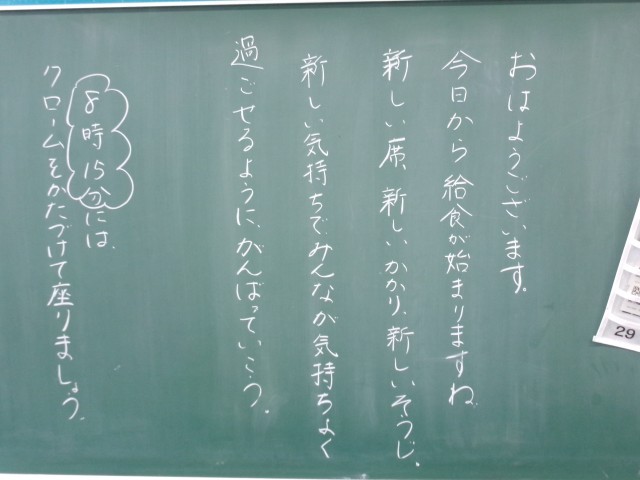 おはようございます。
今日から給食が始まりますね。
新しい席、新しいかかり、新しいそうじ。
新しい気持ちでみんなが気持ちよく
過ごせるように、がんばっていこう。
8時15分には、
クロームをかたづけて座りましょう。
29